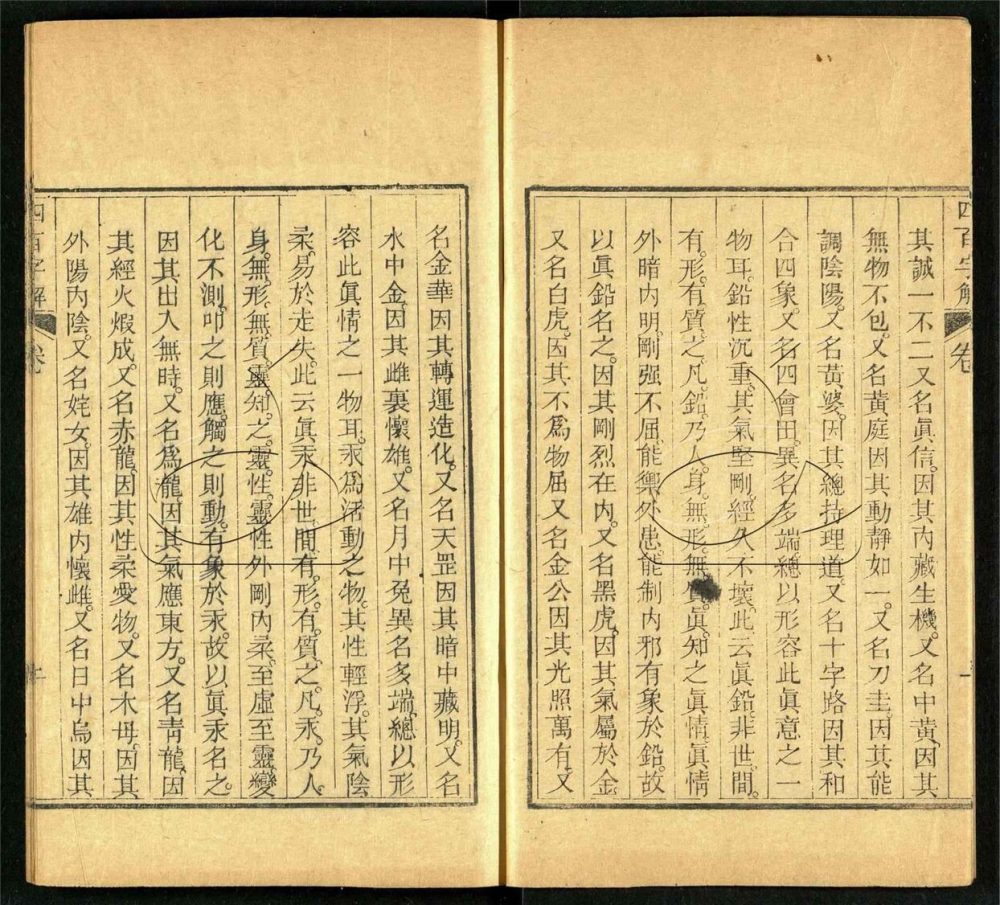 四百字解 卷
其誠一不二又名眞信因其內藏生機又名中黃因其
無物不包又名黃庭因其動靜如一又名刀圭因其能
調陰陽又名黃婆因其總持理道又名十字路因其和
合四象又名四會田異名多端總以形容此眞意之一
物耳鉛性沉重其氣堅剛經久不壞此云眞鉛非世間
有形有質之凡鉛乃人身無形無質眞知之眞情眞情
外暗內明剛强不屈能禦外患能制內邪有象於鉛故
以眞鉛名之因其剛烈在內又名黑虎因其氣屬於金
又名白虎因其不爲物屈又名金公因其光照萬有又
名金華因其轉運造化又名天罡因其暗中藏明又名
水中金因其雌裏懷雄又名月中兔異名多端總以形
容此眞情之一物耳汞爲活動之物其性輕浮其氣陰
柔易於走失此云眞汞非世間有形有質之凡汞乃人
身無形無質靈知之靈性靈性外剛內柔至虛至靈變
化不測叩之則應觸之則動有象於汞故以眞汞名之
因其出入無時又名爲龍因其氣應東方又名靑龍因
其經火煅成又名赤龍因其性柔愛物又名木母因其
外陽內陰又名姹女因其雄內懷雌又名日中烏因其
四百字解 卷